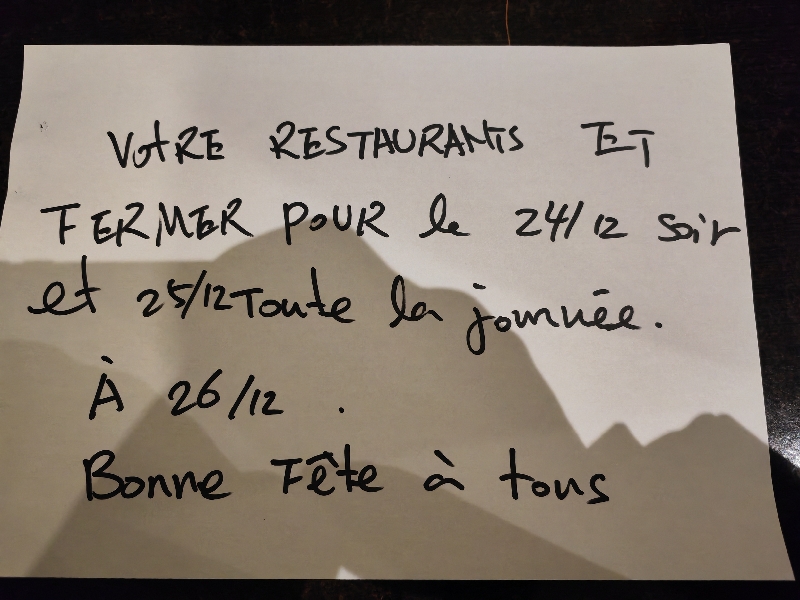 VOTRE RESTAURANTS ET
FERMER POUR le 24/12 soir
et 25/12 Toute la journée.
À 26/12.
Bonne Fête à tous